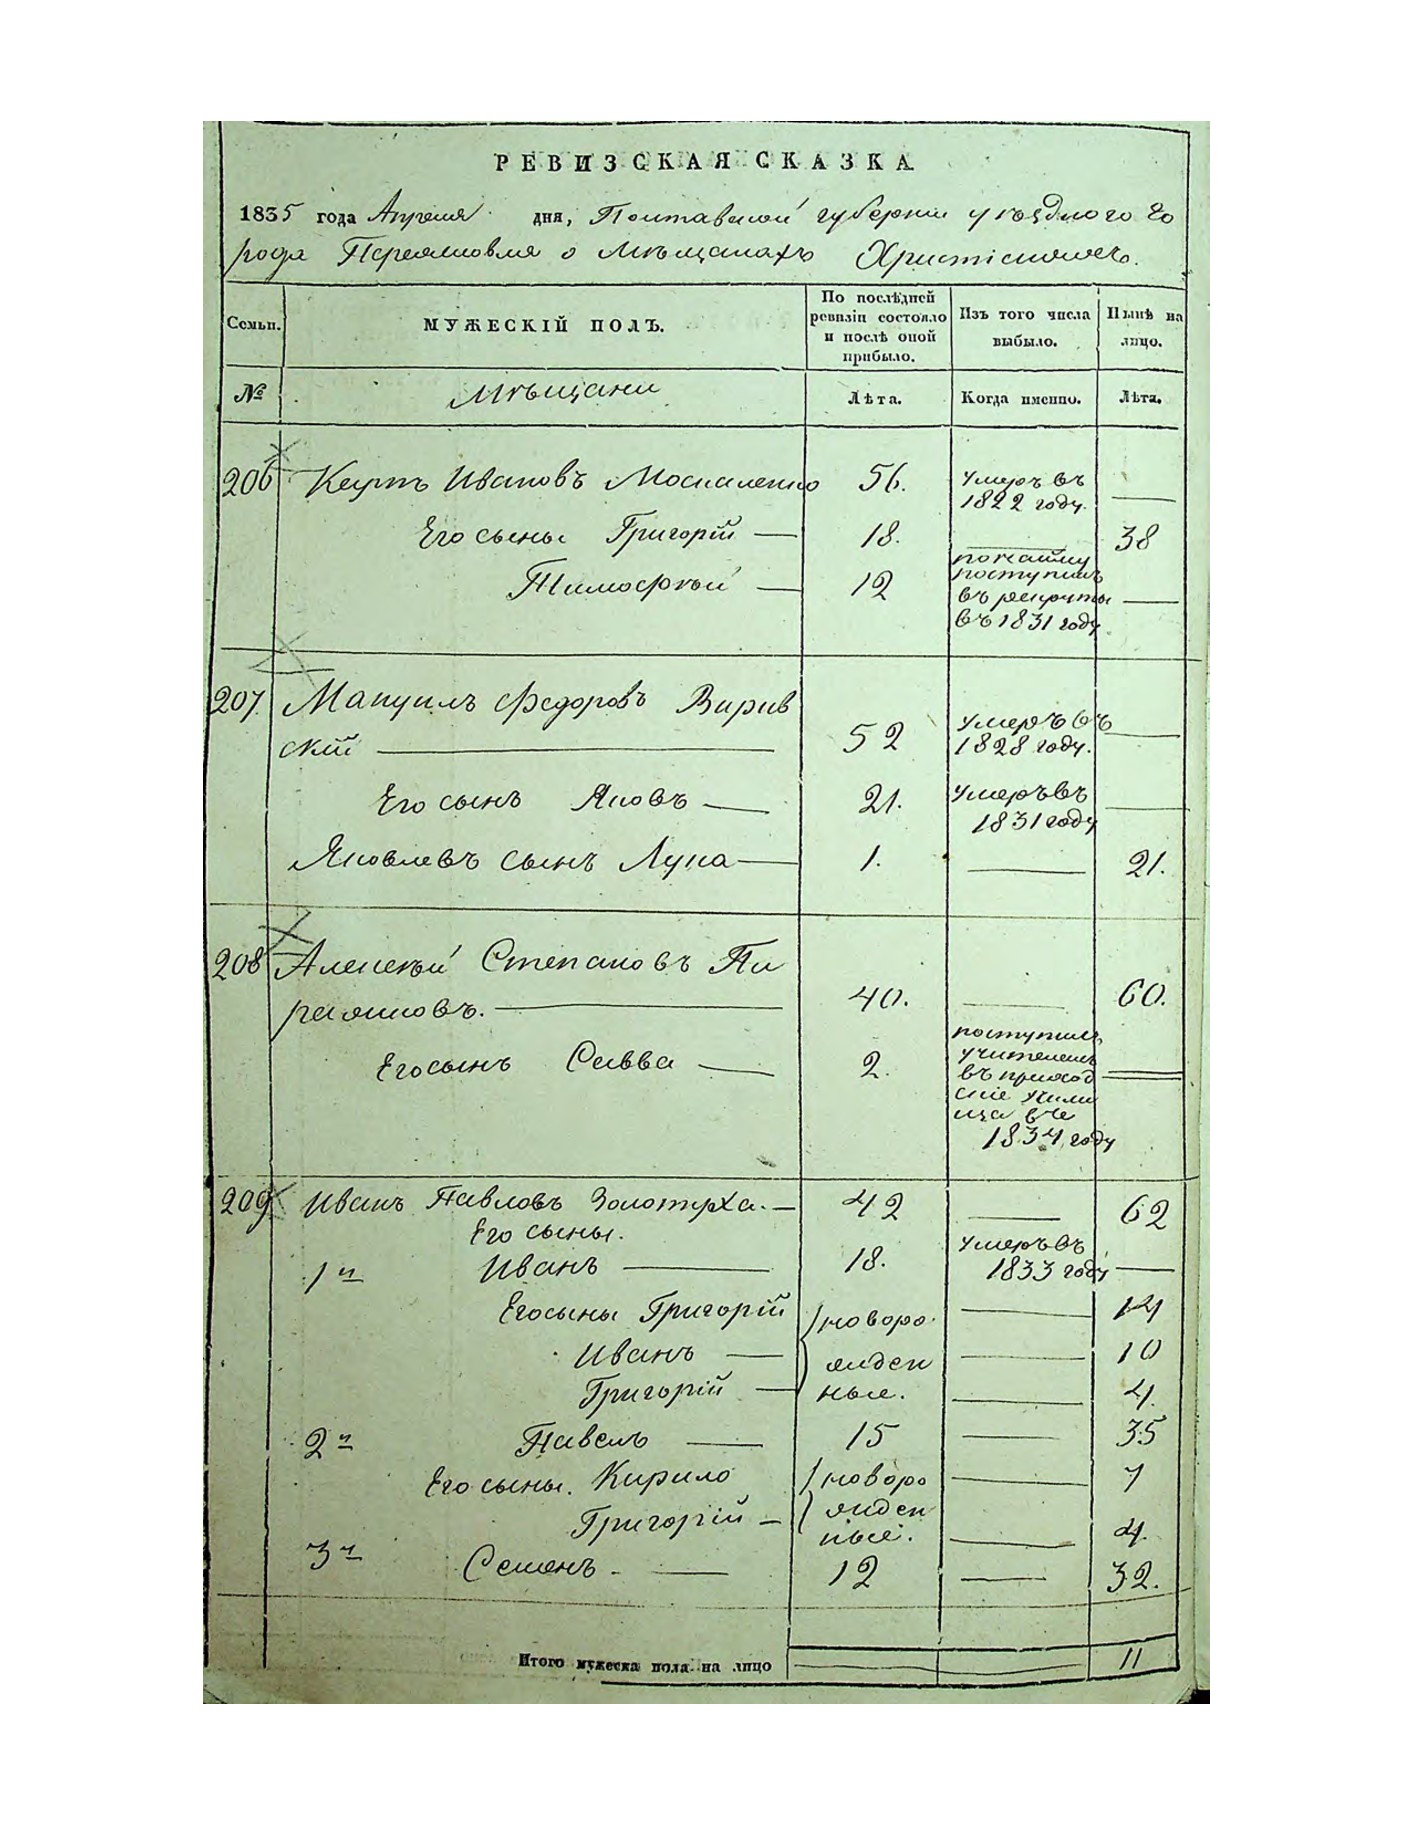 РЕВИЗСКАЯ СКАЗКА
1835 года Апреля дня, Полтавской губернии уѣзднаго Го
рода Переяслова о мѣщанахъ Христіянахъ.
Семьи. МУЖЕСКІЙ ПОЛЪ. По послѣдней ревизіи состояло и послѣ оной прибыло. Изъ того числа выбыло. Нынѣ на лицо.
№ Мѣщане Лѣта. Когда именно. Лѣта.
206 Ивановъ Москаленко 56. умеръ въ
1822 году.
Его сыны Григорій 18. 38
Тимофѣй 12
поступилъ
въ рекруты
въ 1831 году
207. Мануилъ Федоровъ Вирив
скій 52 умеръ въ
1828 году.
Его сынъ Яковъ 21. умеръ въ
1831 году
Яковлевъ сынъ Лука 1. 21.
208 Алексѣй Степановъ Пи
40. 60.
Его сынъ Савва 2. поступилъ
учителемъ
въ приход
скіе учили
ща въ
1834 году
209 Иванъ Павловъ Золотуха. 42 62
Его сыны.
1й Иванъ 18. умеръ въ
1833 году
Его сыны Григорій новоро 14
Иванъ жден 10
Григорій ные. 4.
2й Павелъ 15 35
Его сыны. Кирило новоро 7
Григорій жден
ные. 4.
3й Семенъ 12 32.
Итого мужеска пола на лицо 11